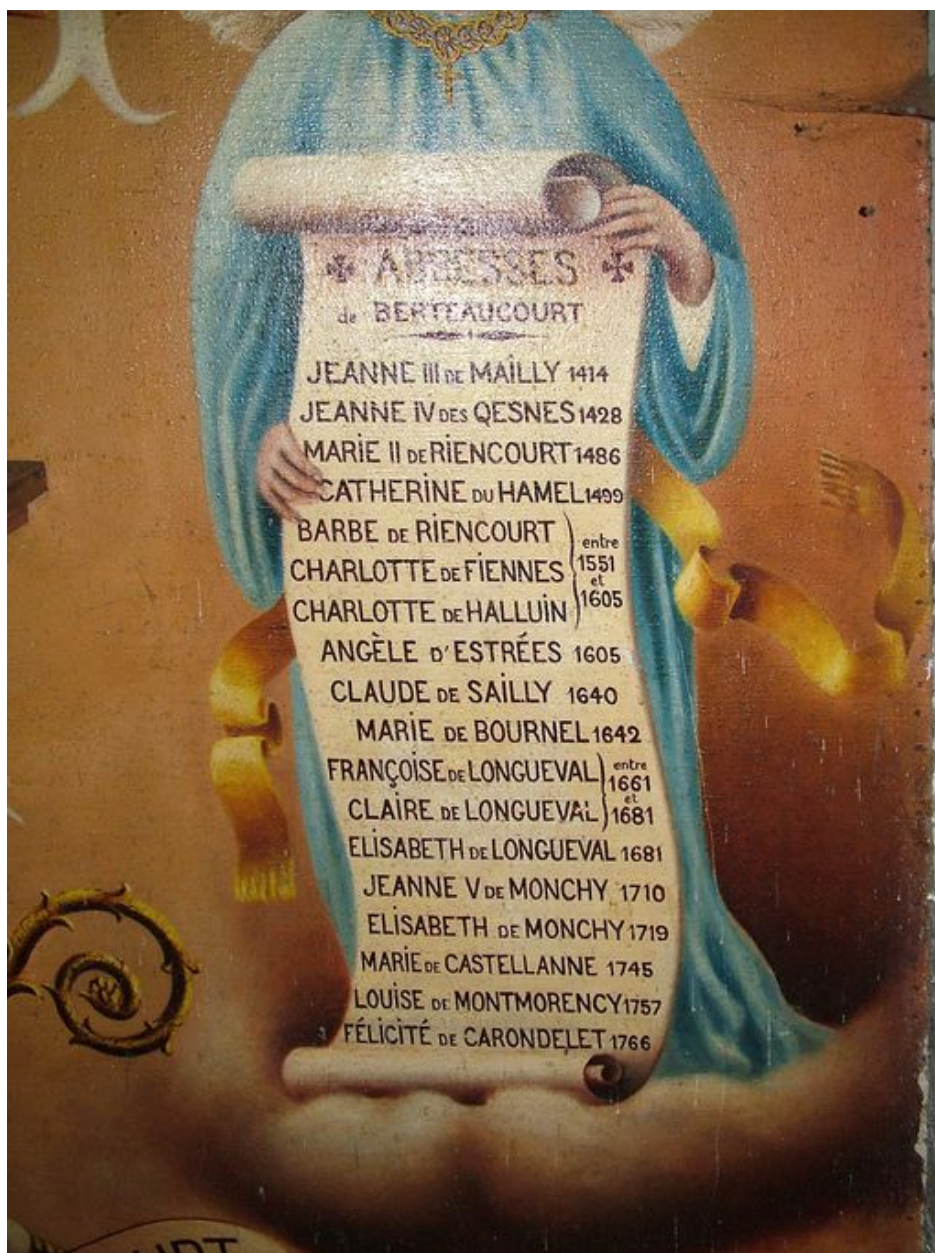 ABBESSES
de BERTEAUCOURT
JEANNE III DE MAILLY 1414
JEANNE IV DES QESNES 1428
MARIE II DE RIENCOURT 1486
CATHERINE DU HAMEL 1499
BARBE DE RIENCOURT
CHARLOTTE DE FIENNES
CHARLOTTE DE HALLUIN
entre
1551
et
1605
ANGÈLE D'ESTRÉES 1605
CLAUDE DE SAILLY 1640
MARIE DE BOURNEL 1642
FRANÇOISE DE LONGUEVAL
CLAIRE DE LONGUEVAL
entre
1661
et
1681
ELISABETH DE LONGUEVAL 1681
JEANNE V DE MONCHY 1710
ELISABETH DE MONCHY 1719
MARIE DE CASTELLANNE 1745
LOUISE DE MONTMORENCY 1757
FÉLICITÉ DE CARONDELET 1766